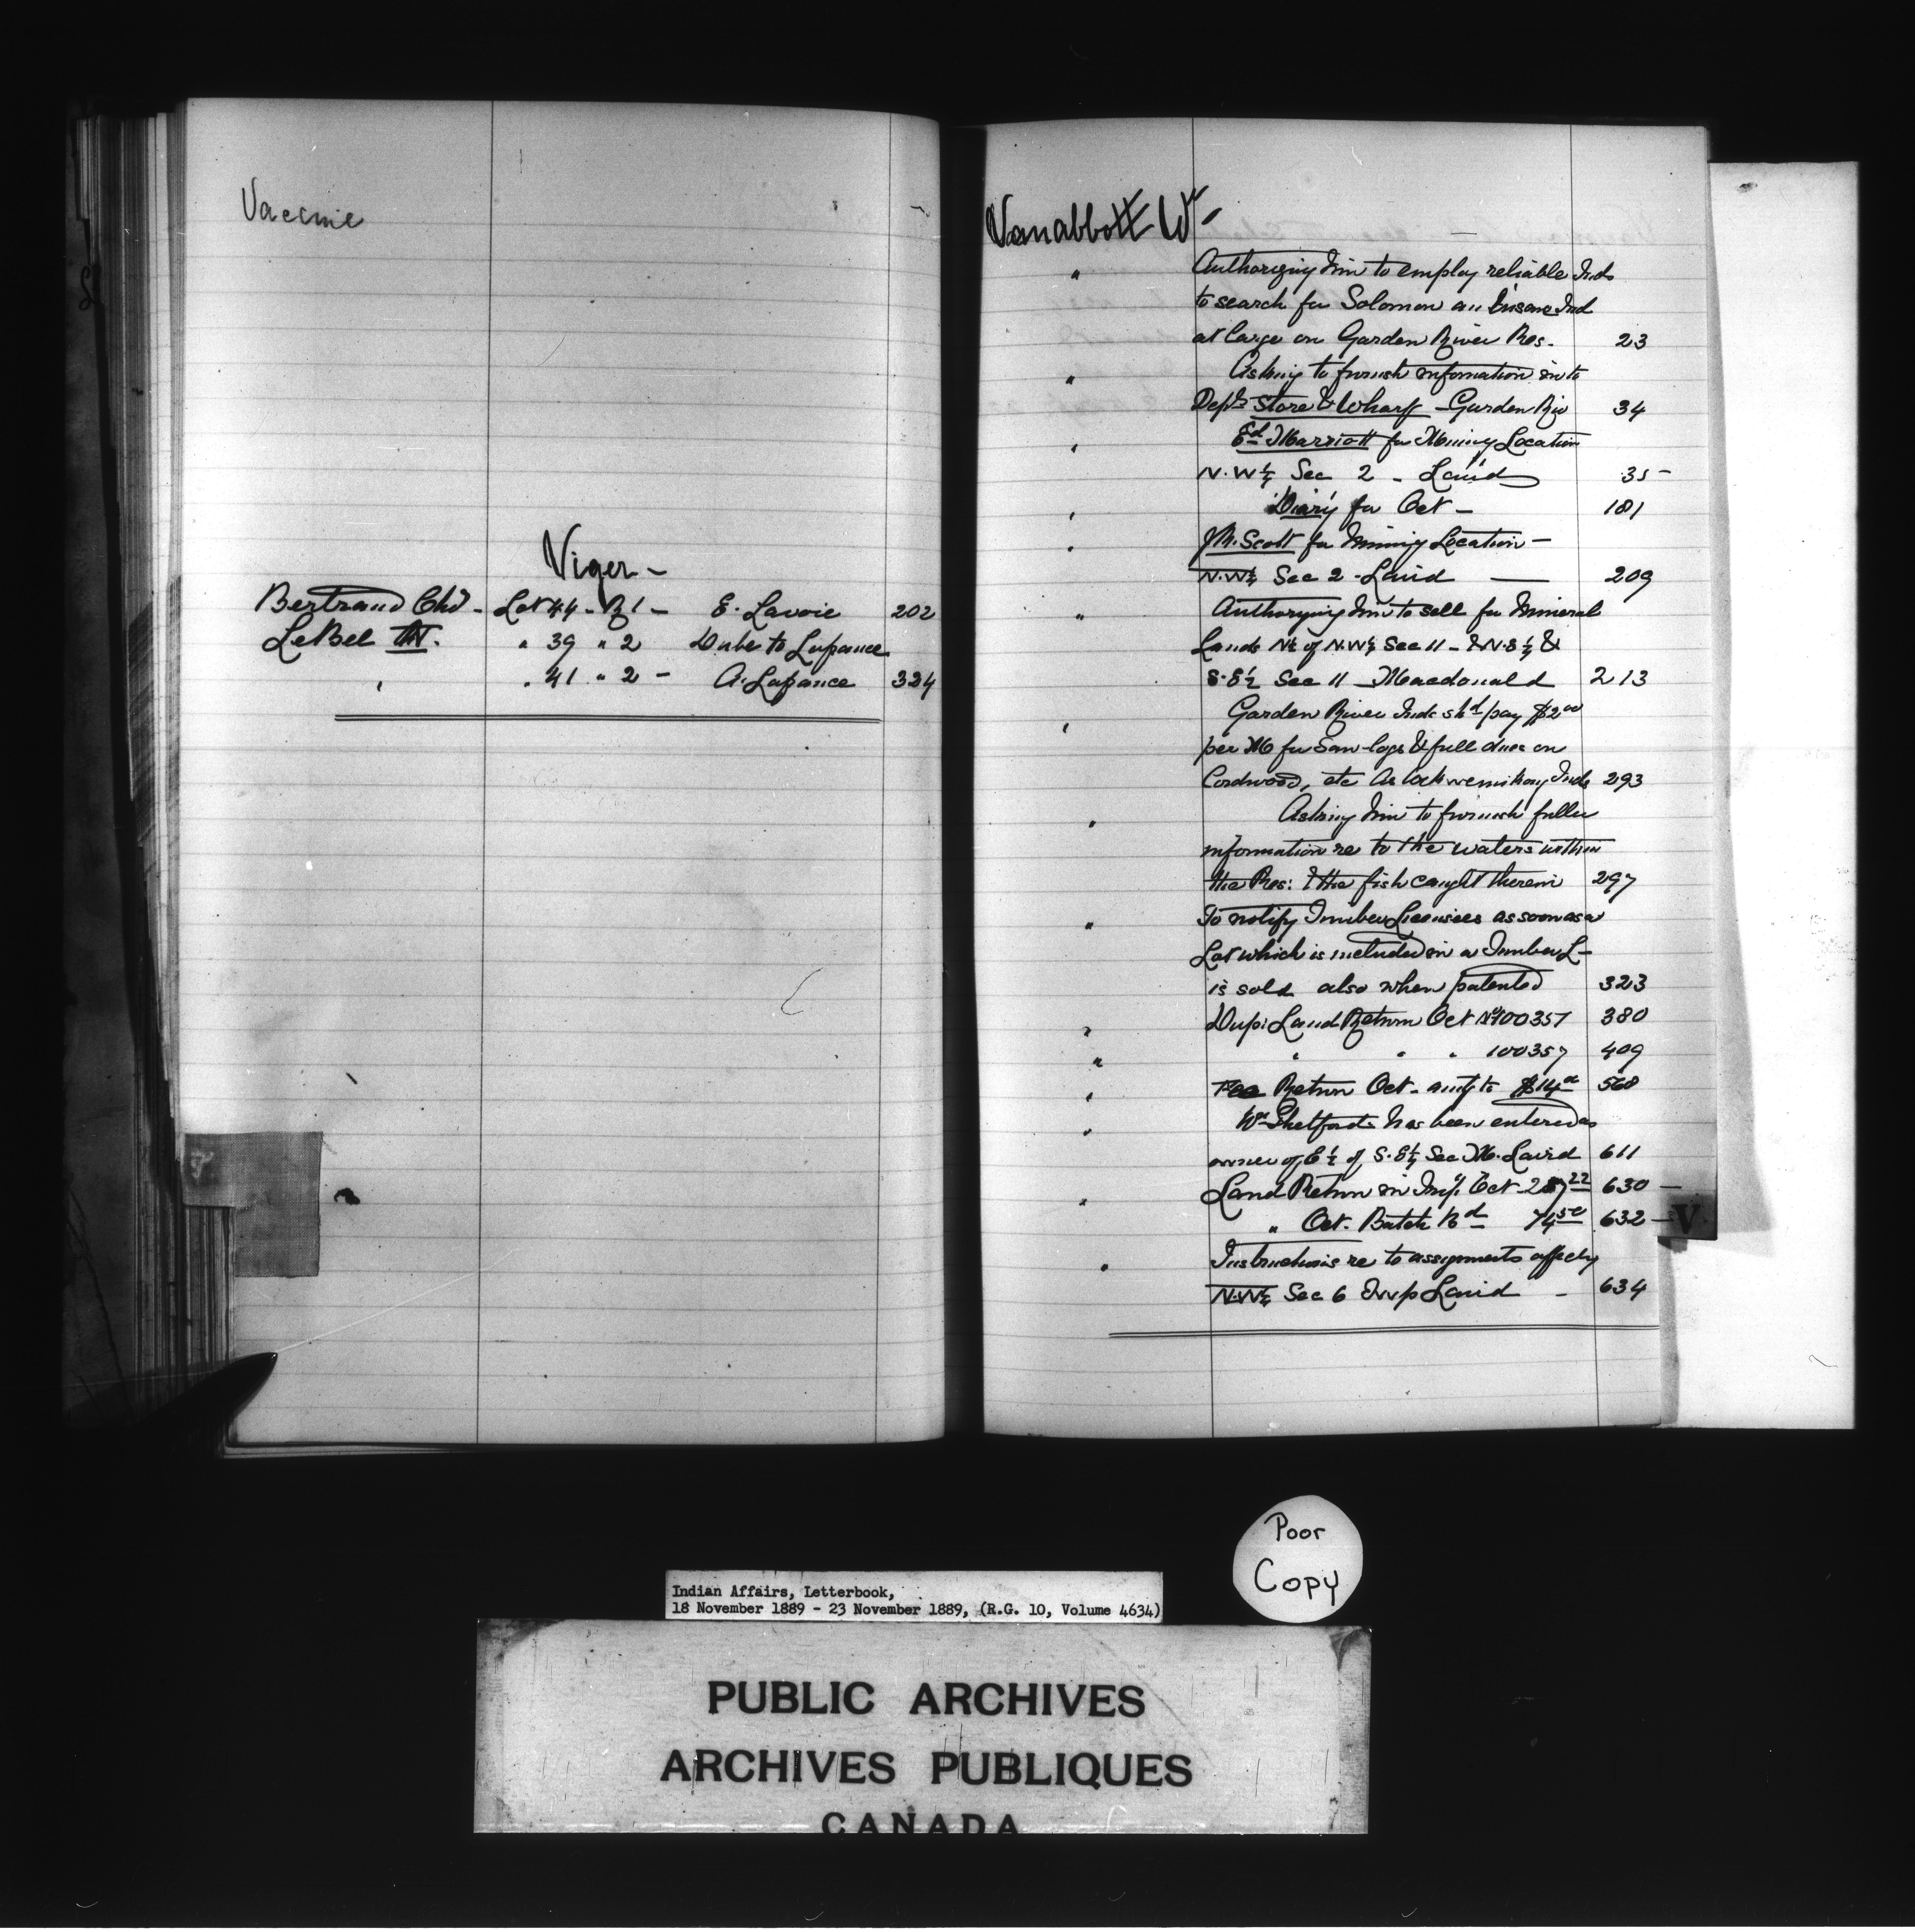 Vaccine
Viger -
Bertrand Chs - Lot 44 - R 1 - E. Lavoie 202
LeBel " 39 " 2 Dube to Lapance
" " 41 " 2 - A. Lapance 324
Vanabbott Wm
" Authorizing him to employ reliable Inds
to search for Solomon an Insane Ind
at large on Garden River Res. 23
" Asking to furnish information in to
Depts Store & Wharf - Garden Riv 34
" Ed Marriott for Mining Location
N.W¼ Sec 2 - Laird 35 -
" Diary for Oct - 181
" J M. Scott for Mining Location -
N.W¼ Sec 2 - Laird — 209
" Authorizing him to sell for Mineral
Lands N½ of N.W¼ Sec 11 - & N.E¼ &
S.E¼ Sec 11 - Macdonald 213
" Garden River Inds shd pay $2 00
per M for Saw-logs & full dues on
Cordwood, etc As Inds 293
" Asking him to furnish fuller
information re to the waters within
the Res: & the fish caught therein 297
" To notify Timber Licensees as soon as a
Lot which is included in a Timber L -
is sold also when patented 323
" Dup: Land Return Oct No 100357 380
" " " " 100357 409
" Fee Return Oct - amtg to $14 568
" Wm Shetford has been entered as
owner of E½ of S.E¼ Sec Laird 611
" Land Return Oct 22 630 -
" Oct. Batch 74 50 632 -
" Instructions re to assignments affectg
N.W¼ Sec 6 Twp Laird - 634
V
Poor
Copy
Indian Affairs, Letterbook,
18 November 1889 - 23 November 1889, (R.G. 10, Volume 4634)
PUBLIC ARCHIVES
ARCHIVES PUBLIQUES
CANADA